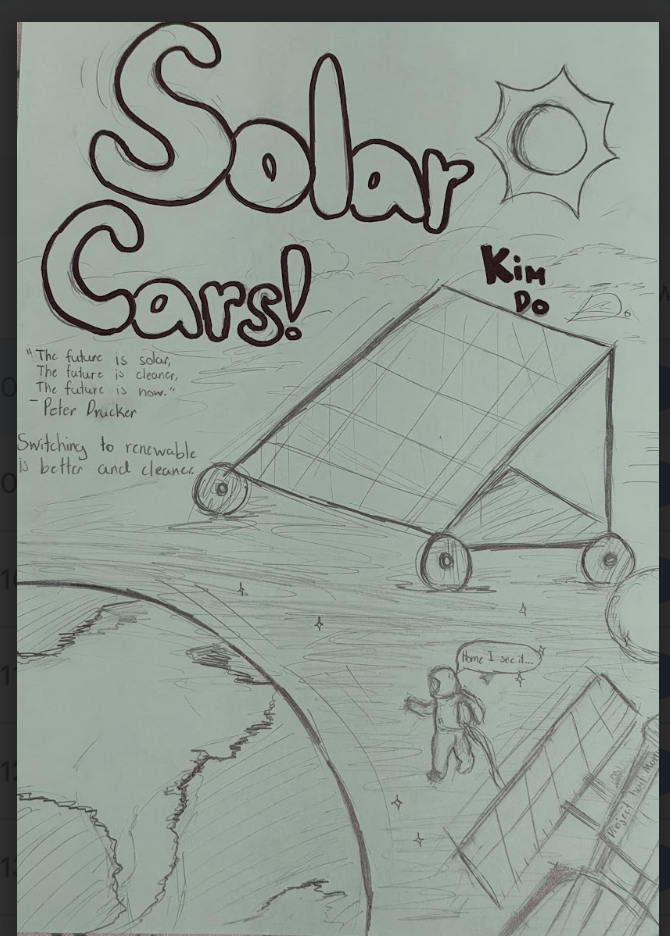 Solar
Cars!
Kim
Do
"The future is solar,
The future is cleaner,
The future is now."
- Peter Drucker
Switching to renewable
is better and cleaner.
Home I see it...
Project Hail